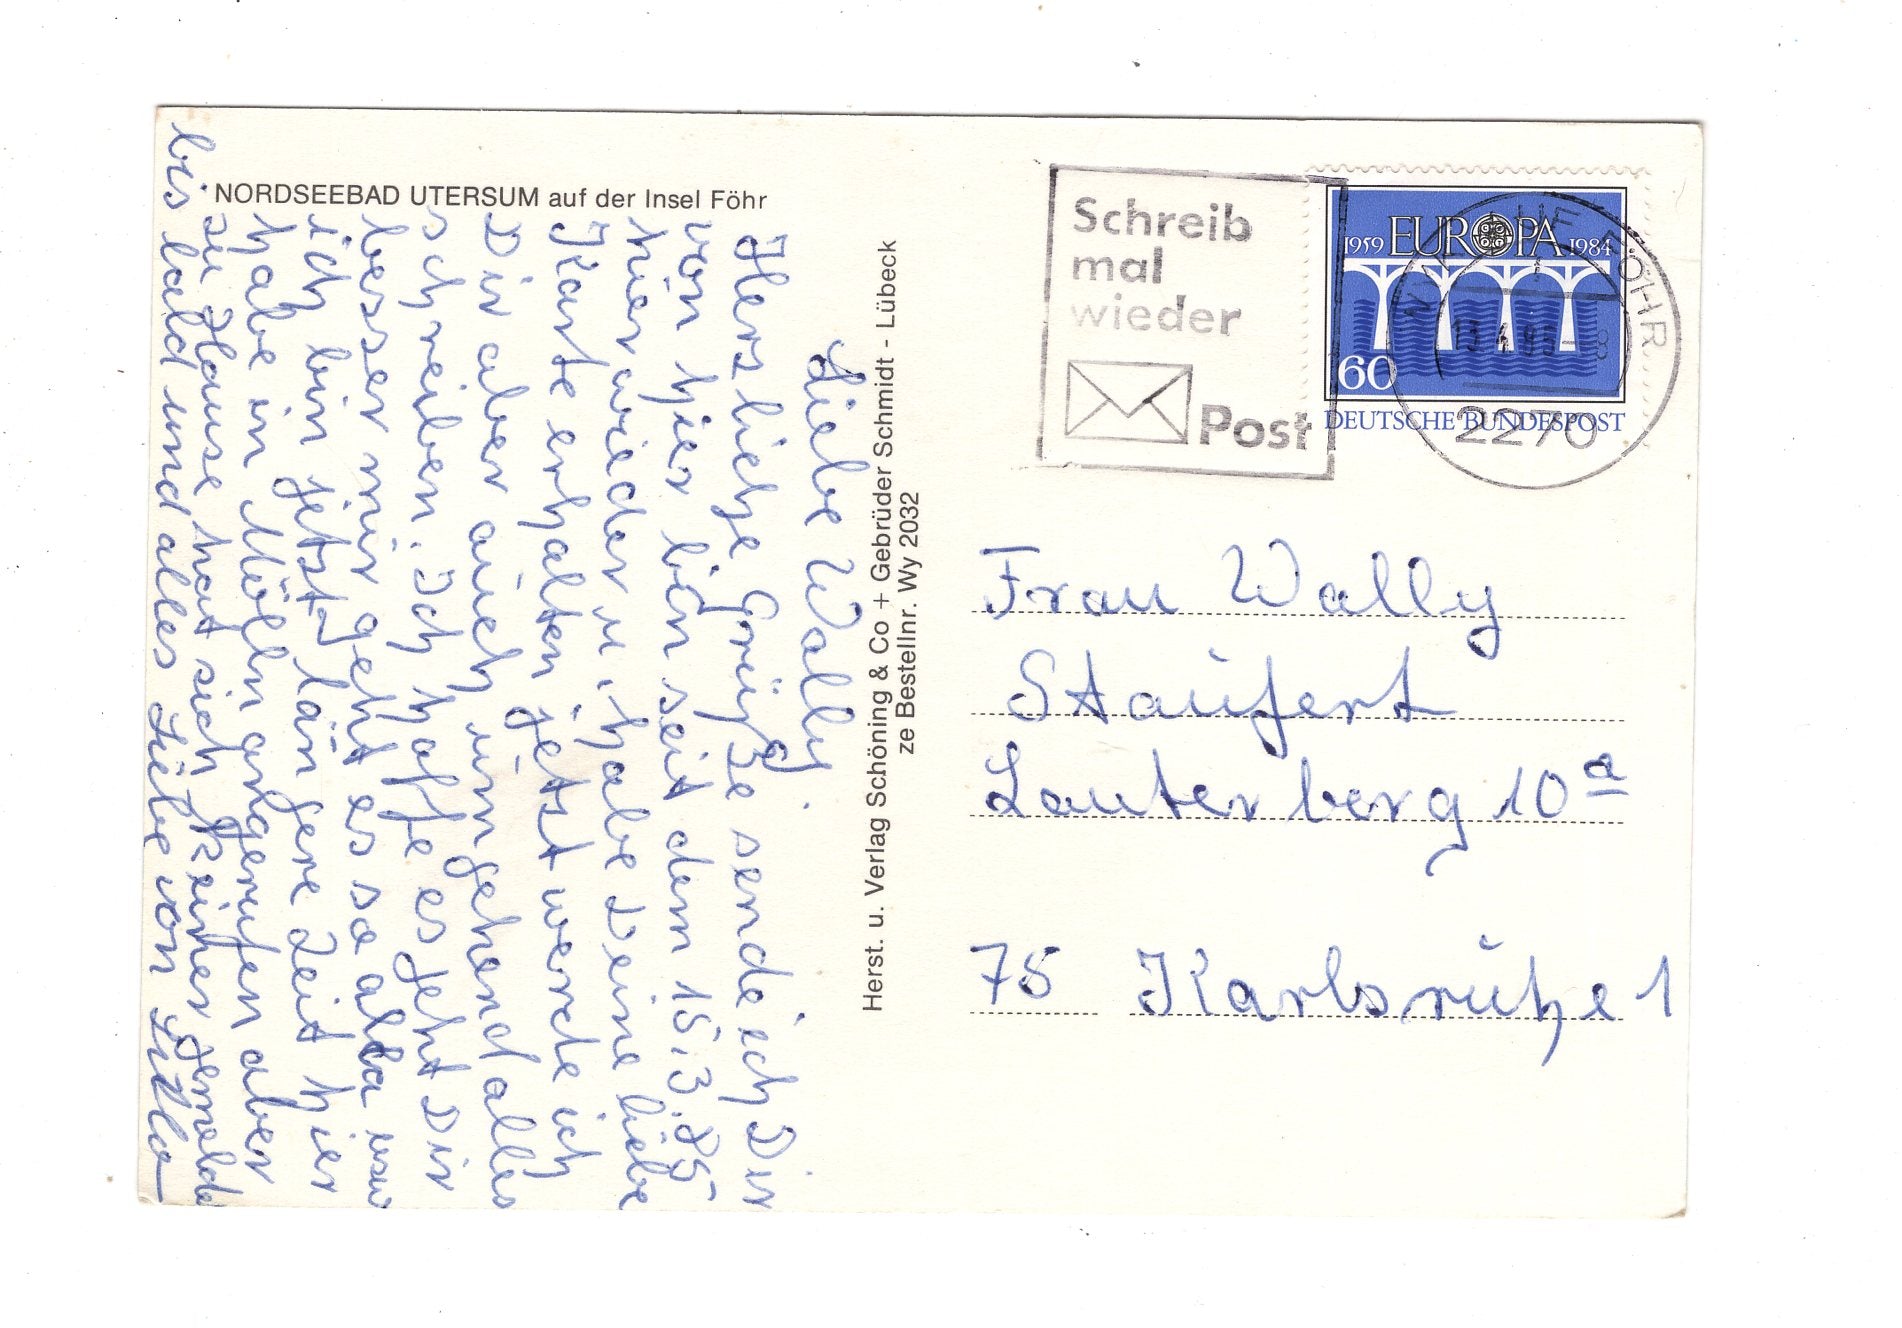 NORDSEEBAD UTERSUM auf der Insel Föhr
Liebe Wally.
Herzliche Grüße sende ich Dir
von hier bin seit dem 15.3.85
hier wieder u. habe Deine liebe
Karte erhalten jetzt werde ich
Dir aber auch umgehend alles
schreiben. Ich hoffe es geht Dir
besser mir geht es so usw
ich bin jetzt längere Zeit hier
habe in Mölln angerufen aber
zu Hause hat sich keiner gemeldet
bis bald und alles Liebe von
Herst. u. Verlag Schöning & Co + Gebrüder Schmidt - Lübeck
ze Bestellnr. Wy 2032
Schreib
mal
wieder
Post
1959 EUROPA 1984
60
DEUTSCHE BUNDESPOST
FÖHR
2270
Frau Wally
Staufert
Lauterberg 10a
75 Karlsruhe 1